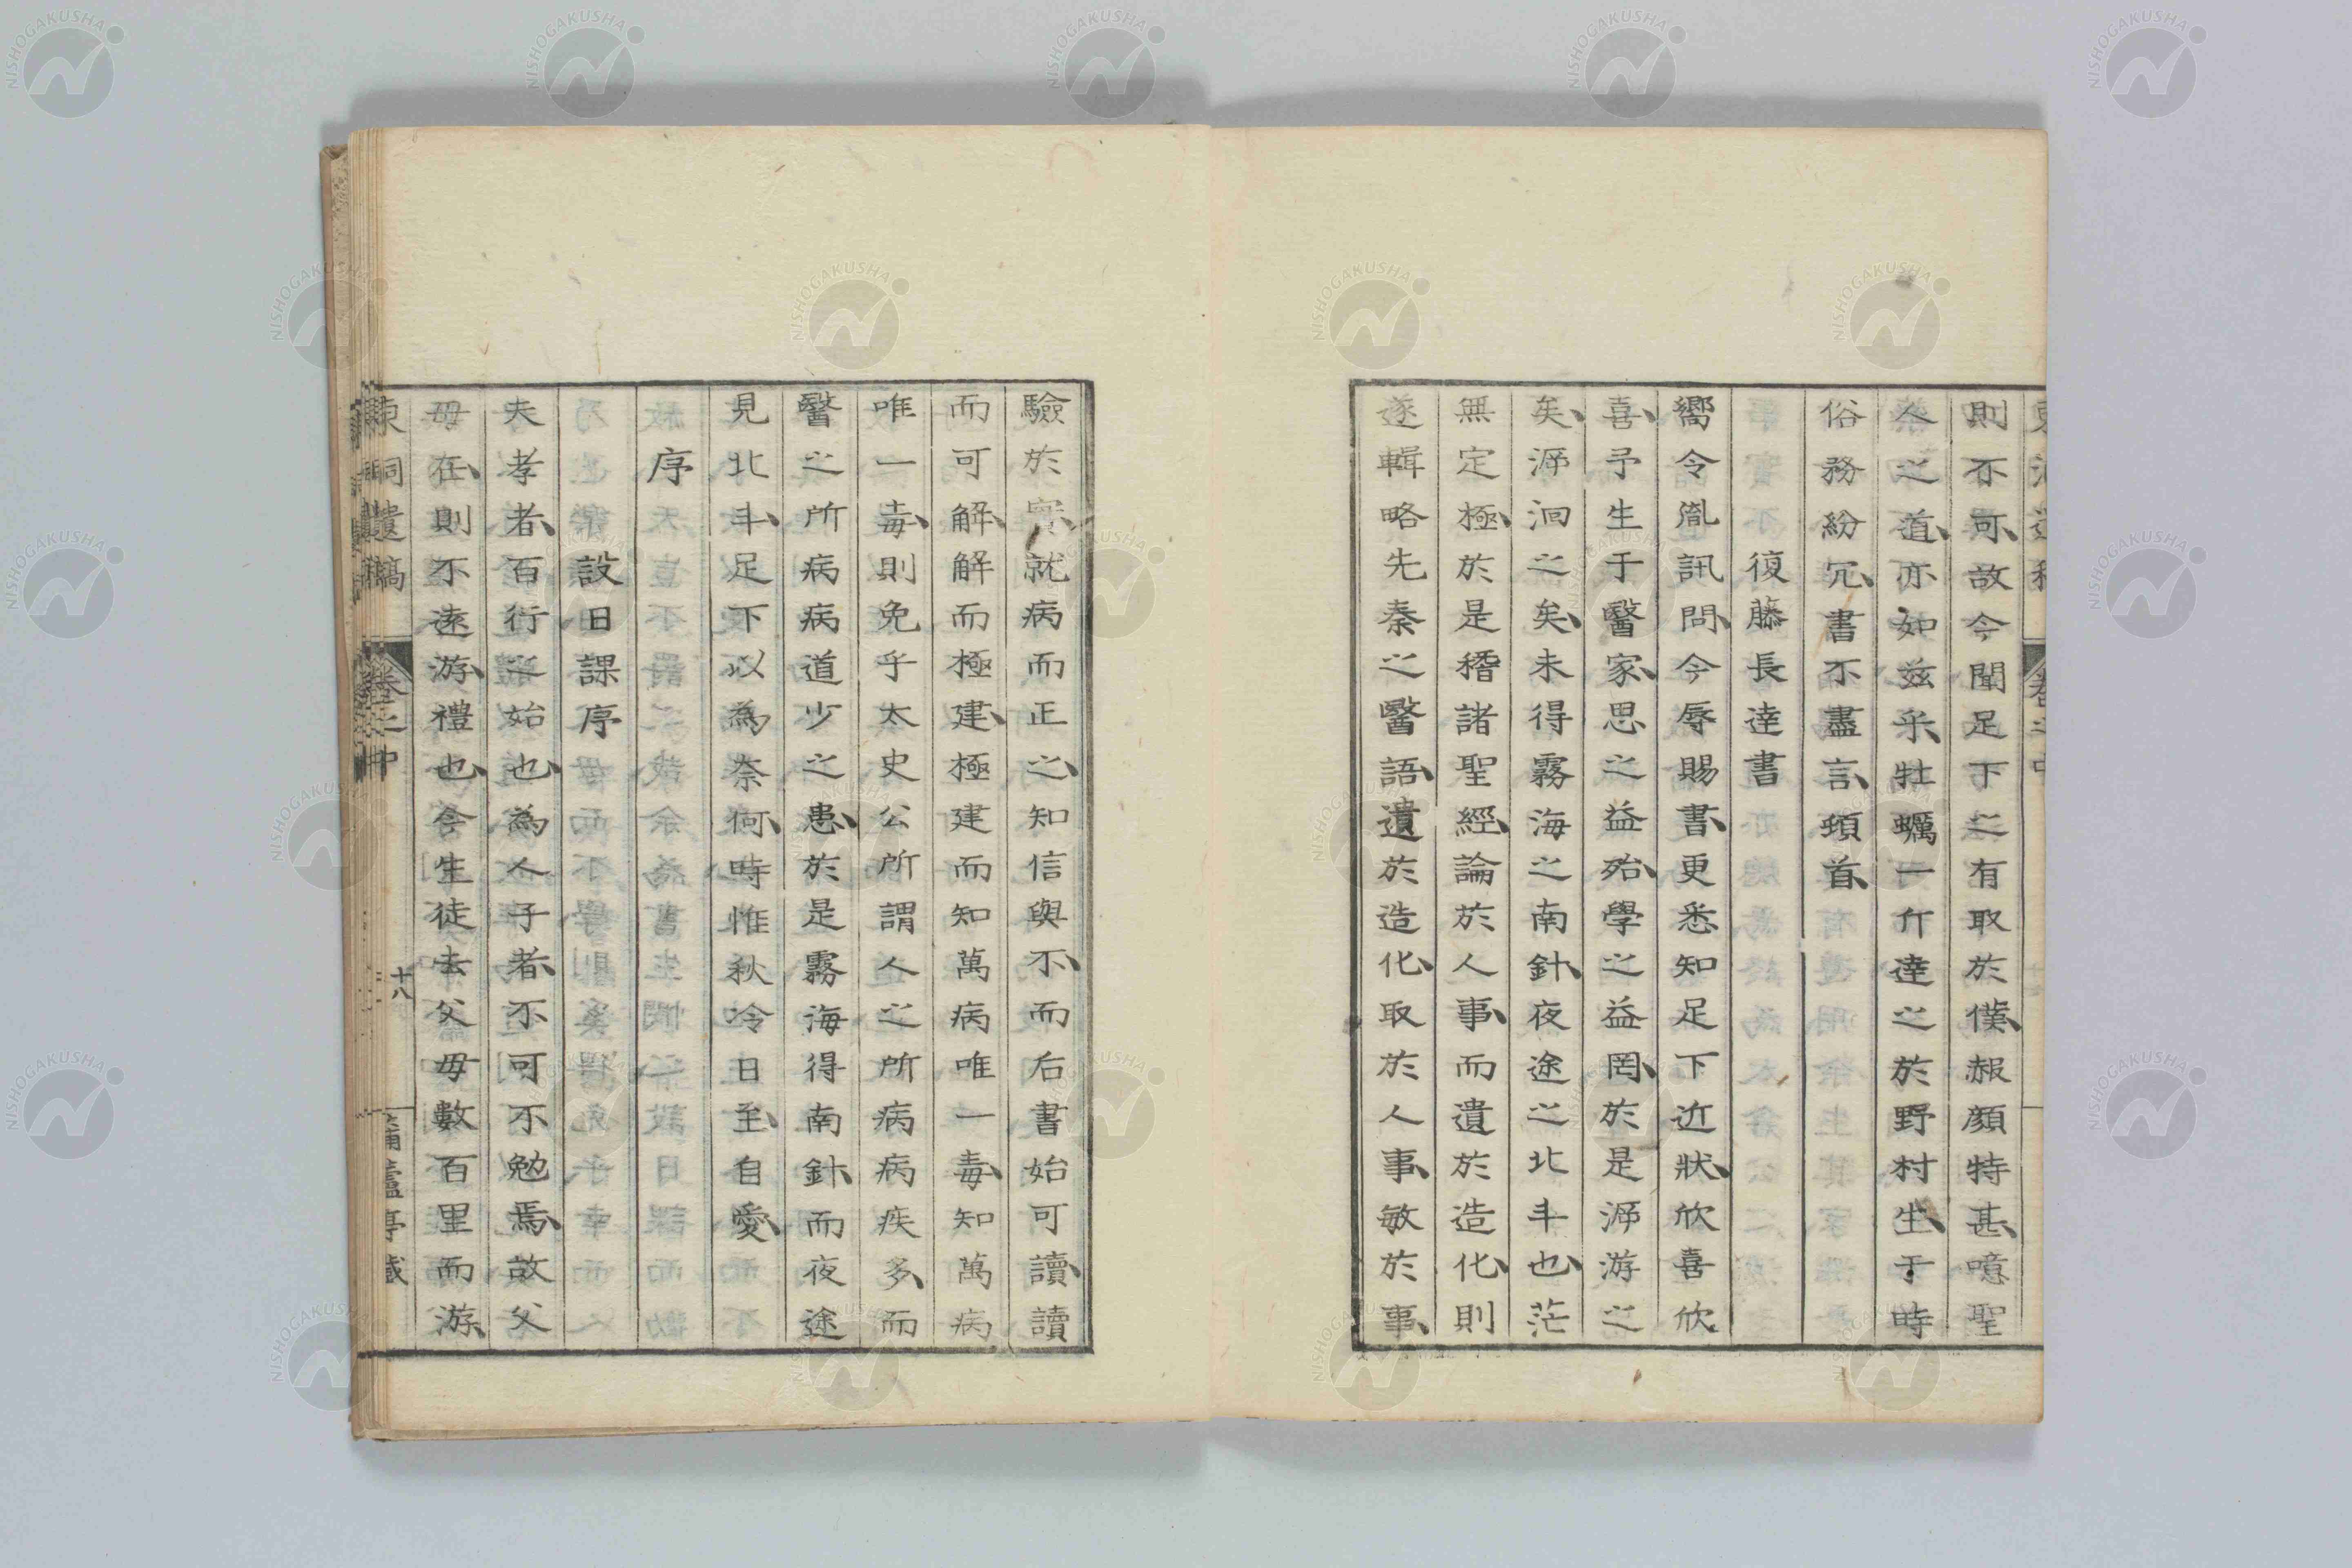 則不可、故今聞足下之有取於僕、赧顏特甚、噫聖
人之道、亦如茲乎、牡蠣一斤達之於野村生、于時
俗務紛冗、書不盡言、頓首、
復藤長達書
嚮令胤訊問、今辱賜書、更悉知足下近狀、欣喜欣
喜、予生于醫家、思之益殆、學之益罔、於是游游之
矣、游洄之矣、未得霧海之南針、夜途之北斗也、茫
無定極、於是稽諸聖經、論於人事、而遺於造化、則
遂輯略先秦之醫語、遺於造化、取於人事、敏於事、
驗於實、就病而正之、知信與不、而后書始可讀、讀
而可解、解而極建、極建而知萬病唯一毒、知萬病
唯一毒、則免乎太史公所謂人之所病病疾多、而
醫之所病病道少之患、於是霧海得南針、而夜途
見北斗、足下以為奈何、時惟秋冷日至、自愛、
序
設日課序
夫孝者、百行之始也、為人子者、不可不勉焉、故父
母在、則不遠游、禮也、今生徒去父母數百里而游、
東洞遺稿
卷之中
十八
NISHOGAKUSHA